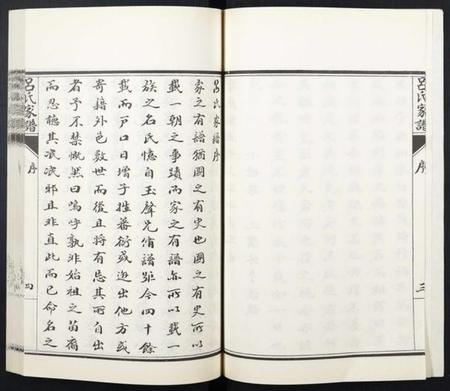 呂氏家譜
序
三
呂氏家譜序
家之有譜猶國之有史也國之有史所以
載一朝之事蹟而家之有譜亦所以載一
族之名氏憶自玉聲兄脩譜距今四十餘
載而戶口日增子姓蕃衍或遊出他方或
寄籍外邑數世而後且將有忘其所自出
者予不禁慨然曰嗚呼孰非始祖之苗裔
而忍聽其泯泯耶且非直此而已命名之
呂氏家譜
序
四